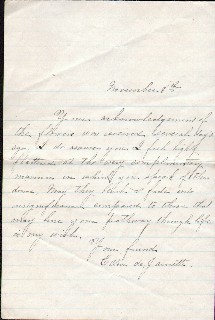 November 8th
Your acknowledgement of
the flowers was received several days
ago. I do assure you I feel highly
flattered at the very complimentary
manner in which you speak of them
may they
insignificant compared to those that
may line your pathway through life
is my wish.
Your friend